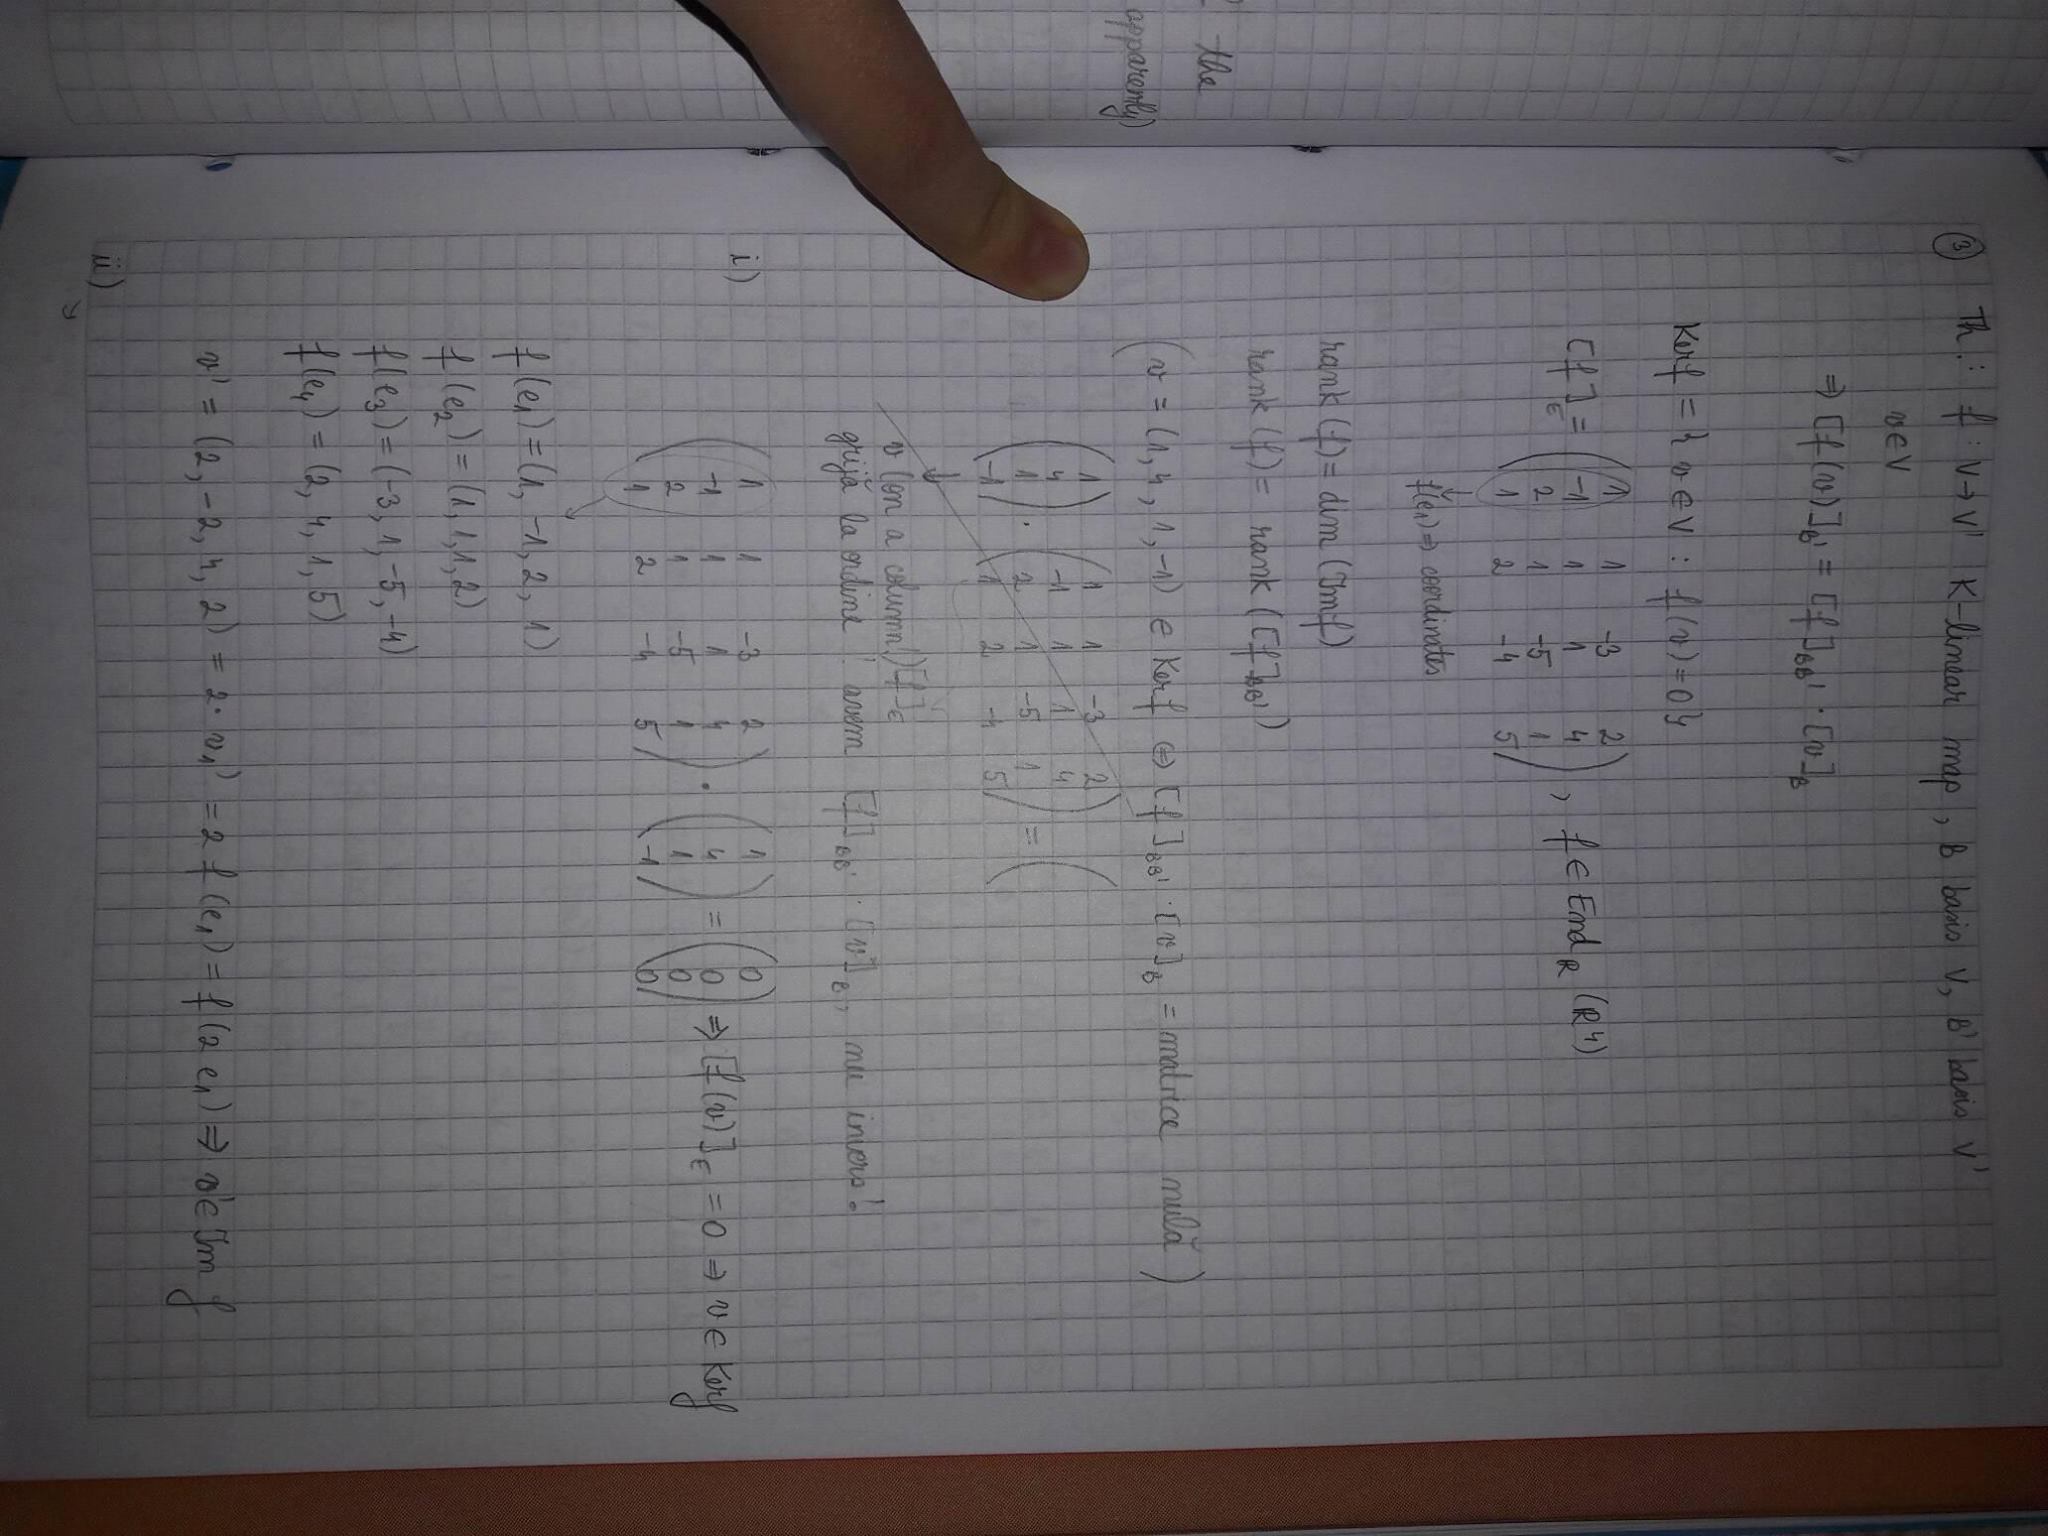 the
apparently)
③ Th.: f: V→V' K-linear map, B basis V, B' basis V'
v∈V
⇒ [f(v)]B' = [f]BB' · [v]B
Kerf = { v ∈ V : f(v) = 0}
[f]E = ( 1 1 -3 2
-1 1 1 4
2 1 -5 1
1 2 -4 5 ) , f ∈ EndR (R⁴)
f(e1) ⇒ coordinates
rank (f) = dim (Imf)
rank (f) = rank ([f]BB')
(v = (1, 4, 1, -1) ∈ Kerf ⇔ [f]BB' · [v]B = matrice nulă )
( 1
4
1
-1 ) · ( 1 1 -3 2
-1 1 1 4
2 1 -5 1
1 2 -4 5 ) = (
v (on a column!) [f]E
grijă la ordine! avem [f]BB' · [v]B, nu invers!
i) ( 1 1 -3 2
-1 1 1 4
2 1 -5 1
1 2 -4 5 ) · ( 1
4
1
-1 ) = ( 0
0
0
0 ) ⇒ [f(v)]E = 0 ⇒ v ∈ Kerf
f(e1) = (1, -1, 2, 1)
f(e2) = (1, 1, 1, 2)
f(e3) = (-3, 1, -5, -4)
f(e4) = (2, 4, 1, 5)
v' = (2, -2, 4, 2) = 2· v1' = 2 f(e1) = f(2 e1) ⇒ v' ∈ Im f
ii)